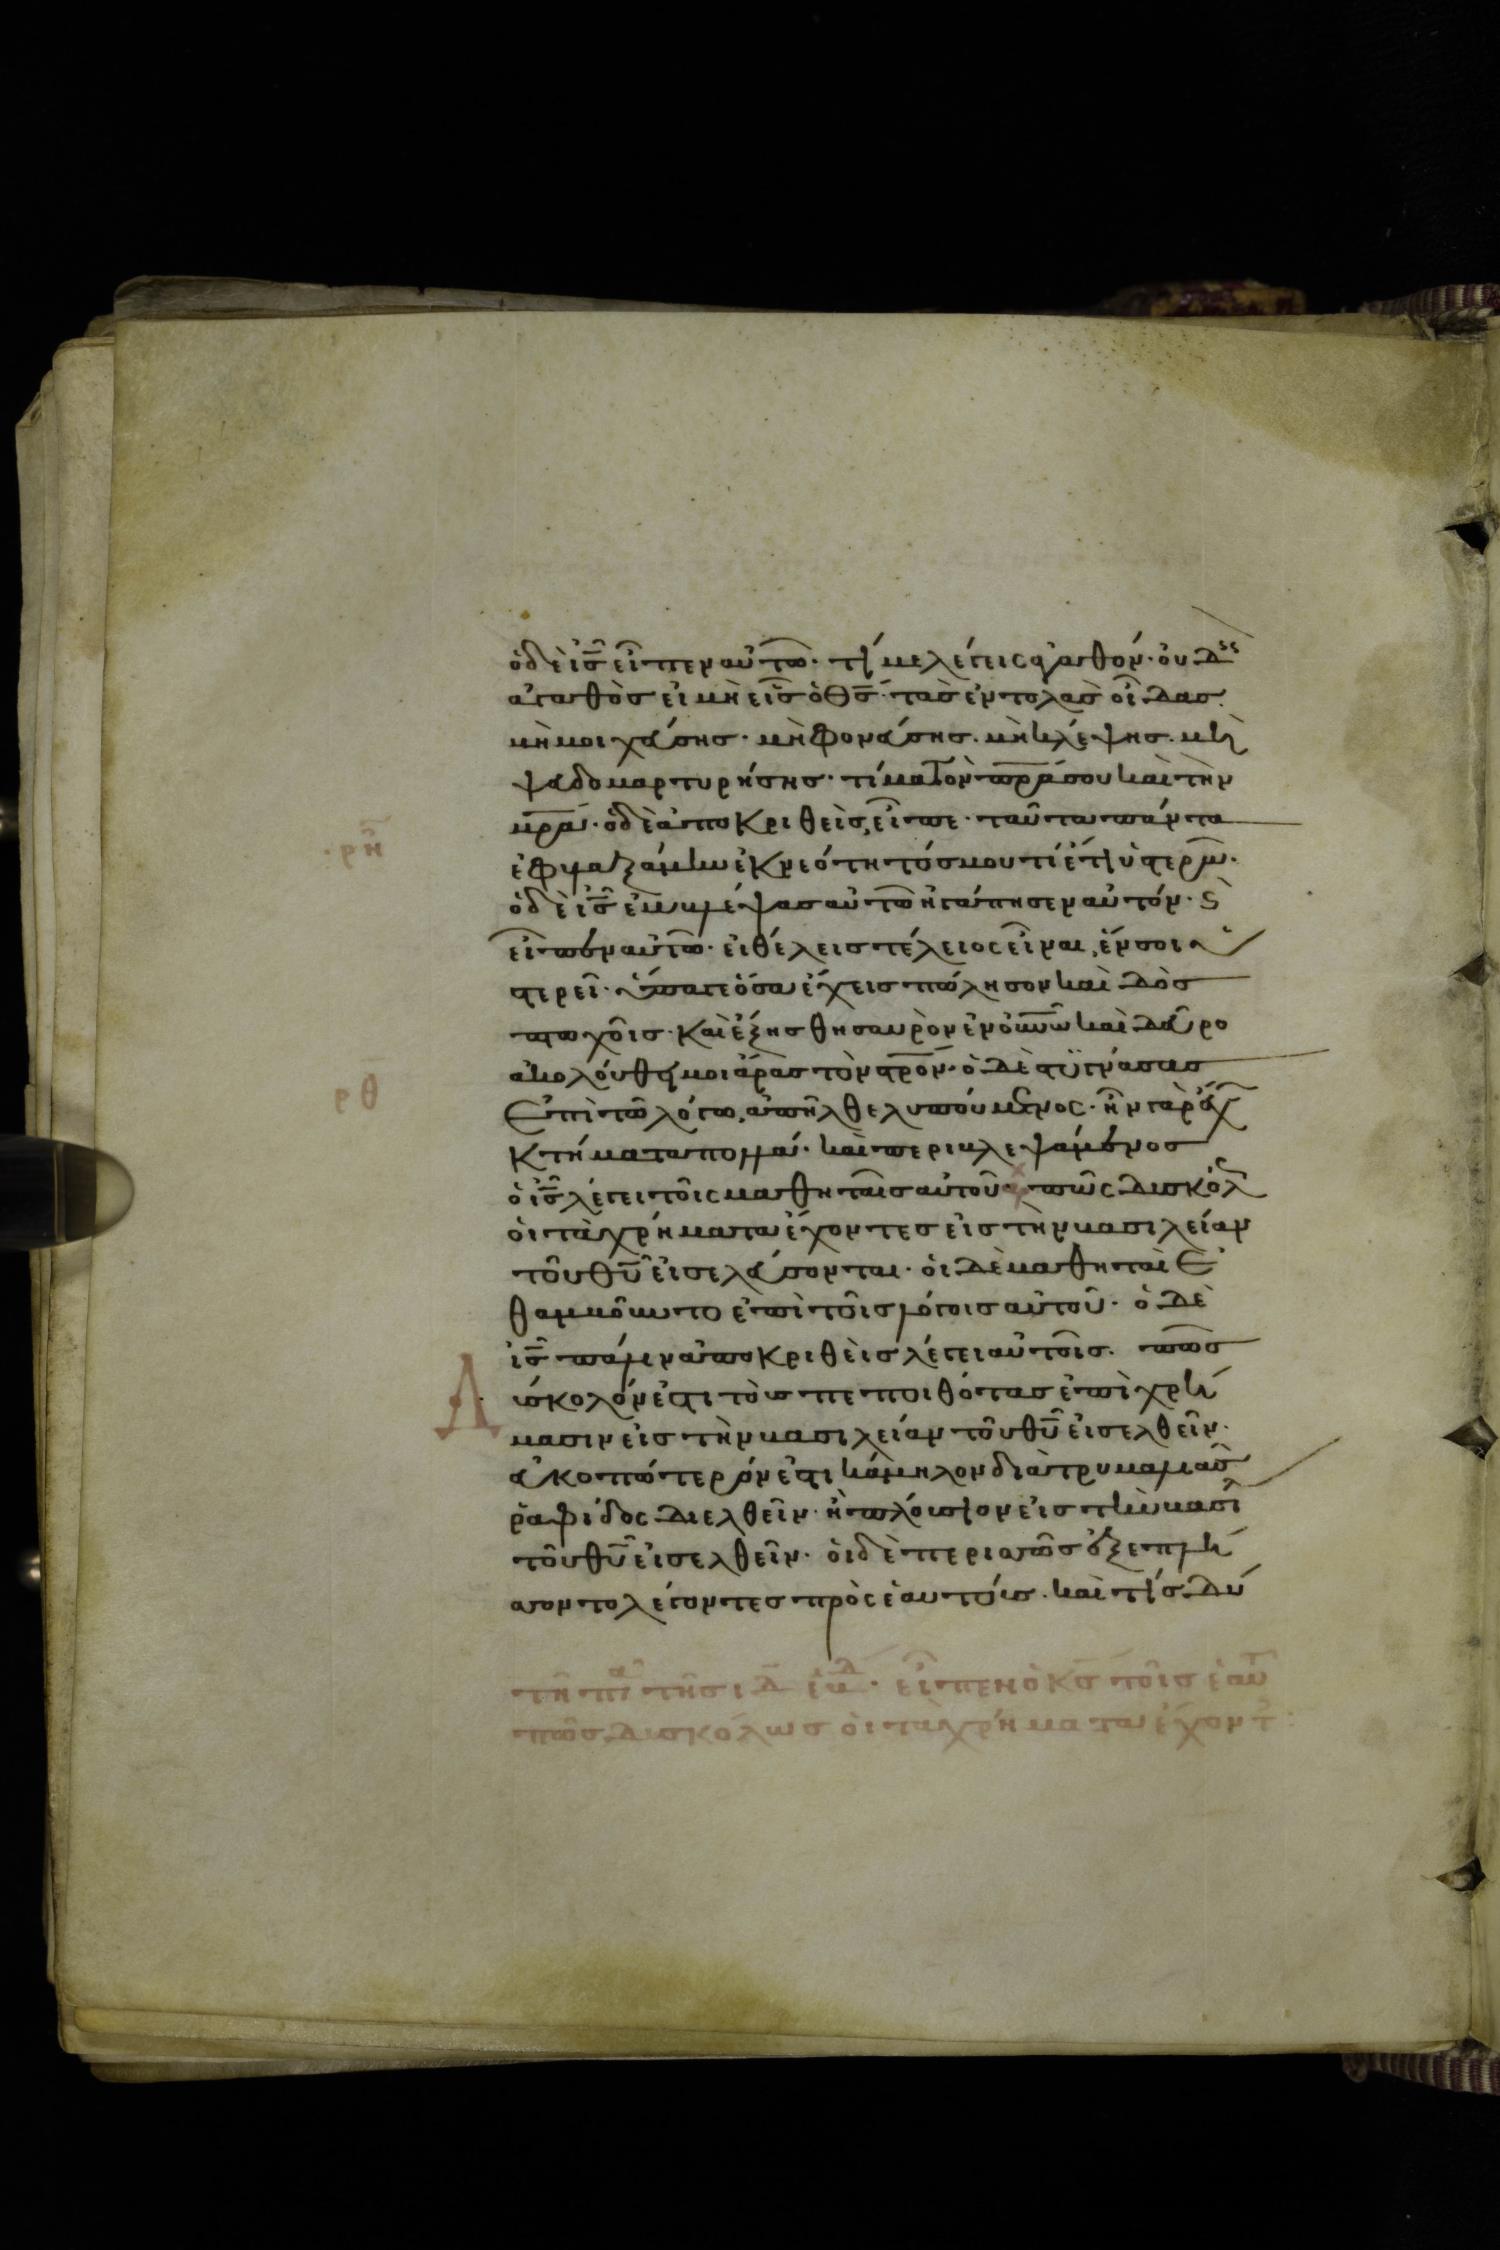 ὁ δὲ ἰ̅ς̅ εἶπεν αὐτῶ· τί με λέγεις ἀγαθόν· οὐδεὶς
ἀγαθὸσ εἰ μὴ εἷσ ὁ Θ̅ς̅· τὰσ ἐντολὰσ οἶδασ·
μὴ μοιχεύσησ· μὴ φονεύσησ· μὴ κλέψησ· μὴ
ψευδομαρτυρήσησ· τίμα τὸν π̅ρ̅α σου καὶ τὴν
μ̅ρ̅α· ὁ δὲ ἀποκριθεὶσ, εἶπε· ταῦτα πάντα
ἐφυλαξάμην ἐκ νεότητόσ μου τί ἔτι ὑστερῶ·
ὁ δὲ ἰ̅ς̅ ἐμβλέψασ αὐτῶ ἠγάπησεν αὐτόν· ϛ̀
εἶπεν αὐτῶ· εἰ θέλεισ τέλειος εἶναι, ἕν σοι ὑ
στερεῖ· ὕπαγε ὅσα ἔχεισ πώλησον καὶ δὸσ
πτωχοῖσ· καὶ ἕξησ θησαυρὸν ἐν ο̅υ̅ν̅ω̅ καὶ δεῦρο
ἀκολούθει μοι ἄρασ τὸν στ̅ρ̅ον· ὁ δὲ στυγνάσασ
ἐπὶ τῶ λόγω, ἀπῆλθε λυπούμενος· ἦν γὰρ ἔχ
κτήματα πολλά· καὶ περιβλεψάμενοσ
ὁ ἰ̅ς̅ λέγει τοῖς μαθηταῖσ αὐτοῦ· πῶς δυσκόλ
οἱ τὰ χρήματα ἔχοντεσ εἰσ τὴν βασιλείαν
τοῦ θ̅υ̅ εἰσελεύσονται· οἱ δὲ μαθηταὶ ἐ
θαμβοῦντο ἐπὶ τοῖσ λόγοισ αὐτοῦ· ὁ δὲ
ἰ̅ς̅ πάλιν ἀποκριθεὶσ λέγει αὐτοῖσ· πῶσ
Δύσκολόν ἐστι τοὺσ πεποιθότασ ἐπὶ χρή
μασιν εἰσ τὴν βασιλείαν τοῦ θ̅υ̅ εἰσελθεῖν·
εὐκοπώτερόν ἐστι κάμηλον διὰ τρυμαλιᾶσ
ῥαφίδος διελθεῖν· ἢ πλούσιον εἰσ τὴν βασιλ
τοῦ θ̅υ̅ εἰσελθεῖν· οἱ δὲ περισσῶσ ἐξεπλή
σσοντο λέγοντεσ πρὸς ἑαυτούσ· καὶ τίσ δύ
τῆ τῆσ ι̅δ̅ εἶπεν ὁ κ̅ς̅ τοῖσ ἑαυτ
πῶσ δυσκόλωσ οἱ τὰ χρήματα ἔχοντ
ρη·
ρθ